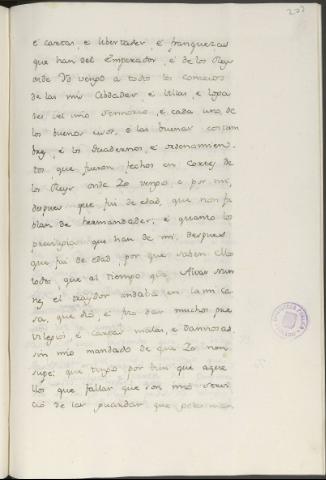 202
e cartas, e libertades, e franquezas
que han del Emperador, e de los Reys
onde Yo vengo a todos los conceios
de las mis Cibdades, e Villas, e Logares
del mio Sennorio, e cada uno de
los buenos usos, e las buenas costum
bres, e los Quadernos, e ordenamien
tos, que fueron fechos en Cortes de
los Reys onde Yo vengo, e por mi,
despues que fui de edad, que non fa
blan de hermandades: e quanto los
previlegios que han de mi, despues
que fui de edad, por que saben ellos
todos, que al tiempo que Alvar Nun
nez el traydor andaba en la mi ca
sa, que dio, e fizo dar muchos pre
vilegios, e cartas malas, e dannosas
sin mio mandado de que Yo non
supe: que tengo por bien que aque
llos que fallar que son mio servi
cio de las guardar, que